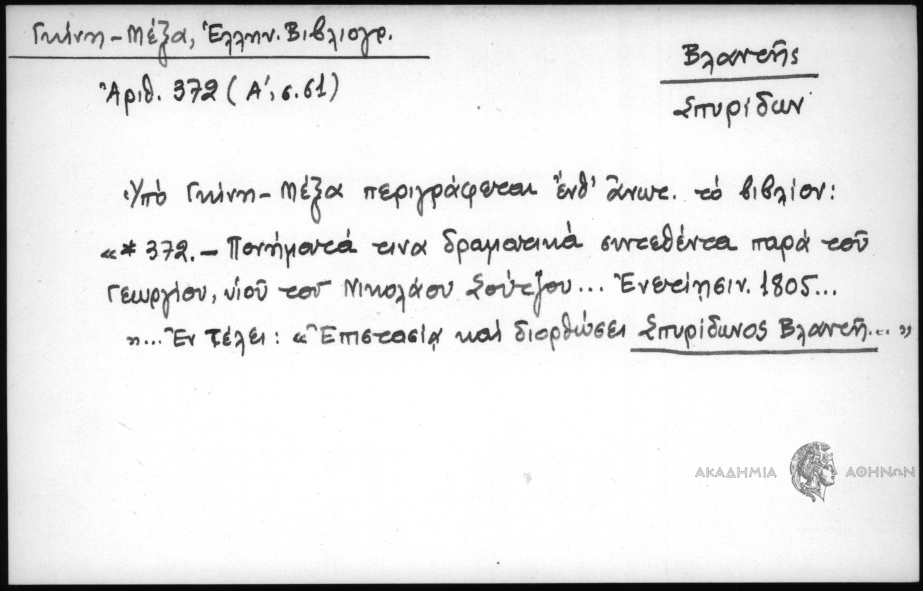 Γκίνη - Μέξα, Ἑλλην. Βιβλιογρ.
Ἀριθ. 372 (Α', σ. 61)
Βλαντῆς
Σπυρίδων
Ὑπὸ Γκίνη - Μέξα περιγράφεται ἔνθ' ἄνωτ. τὸ βιβλίον:
«* 372. – Πονήματά τινα δραματικὰ συντεθέντα παρὰ τοῦ
Γεωργίου, υἱοῦ τοῦ Νικολάου Σούτζου... Ἐνετίησιν. 1805...
»... Ἐν τέλει: «Ἐπιστασίᾳ καὶ διορθώσει Σπυρίδωνος Βλαντῆ...»
ΑΚΑΔΗΜΙΑ ΑΘΗΝΩΝ